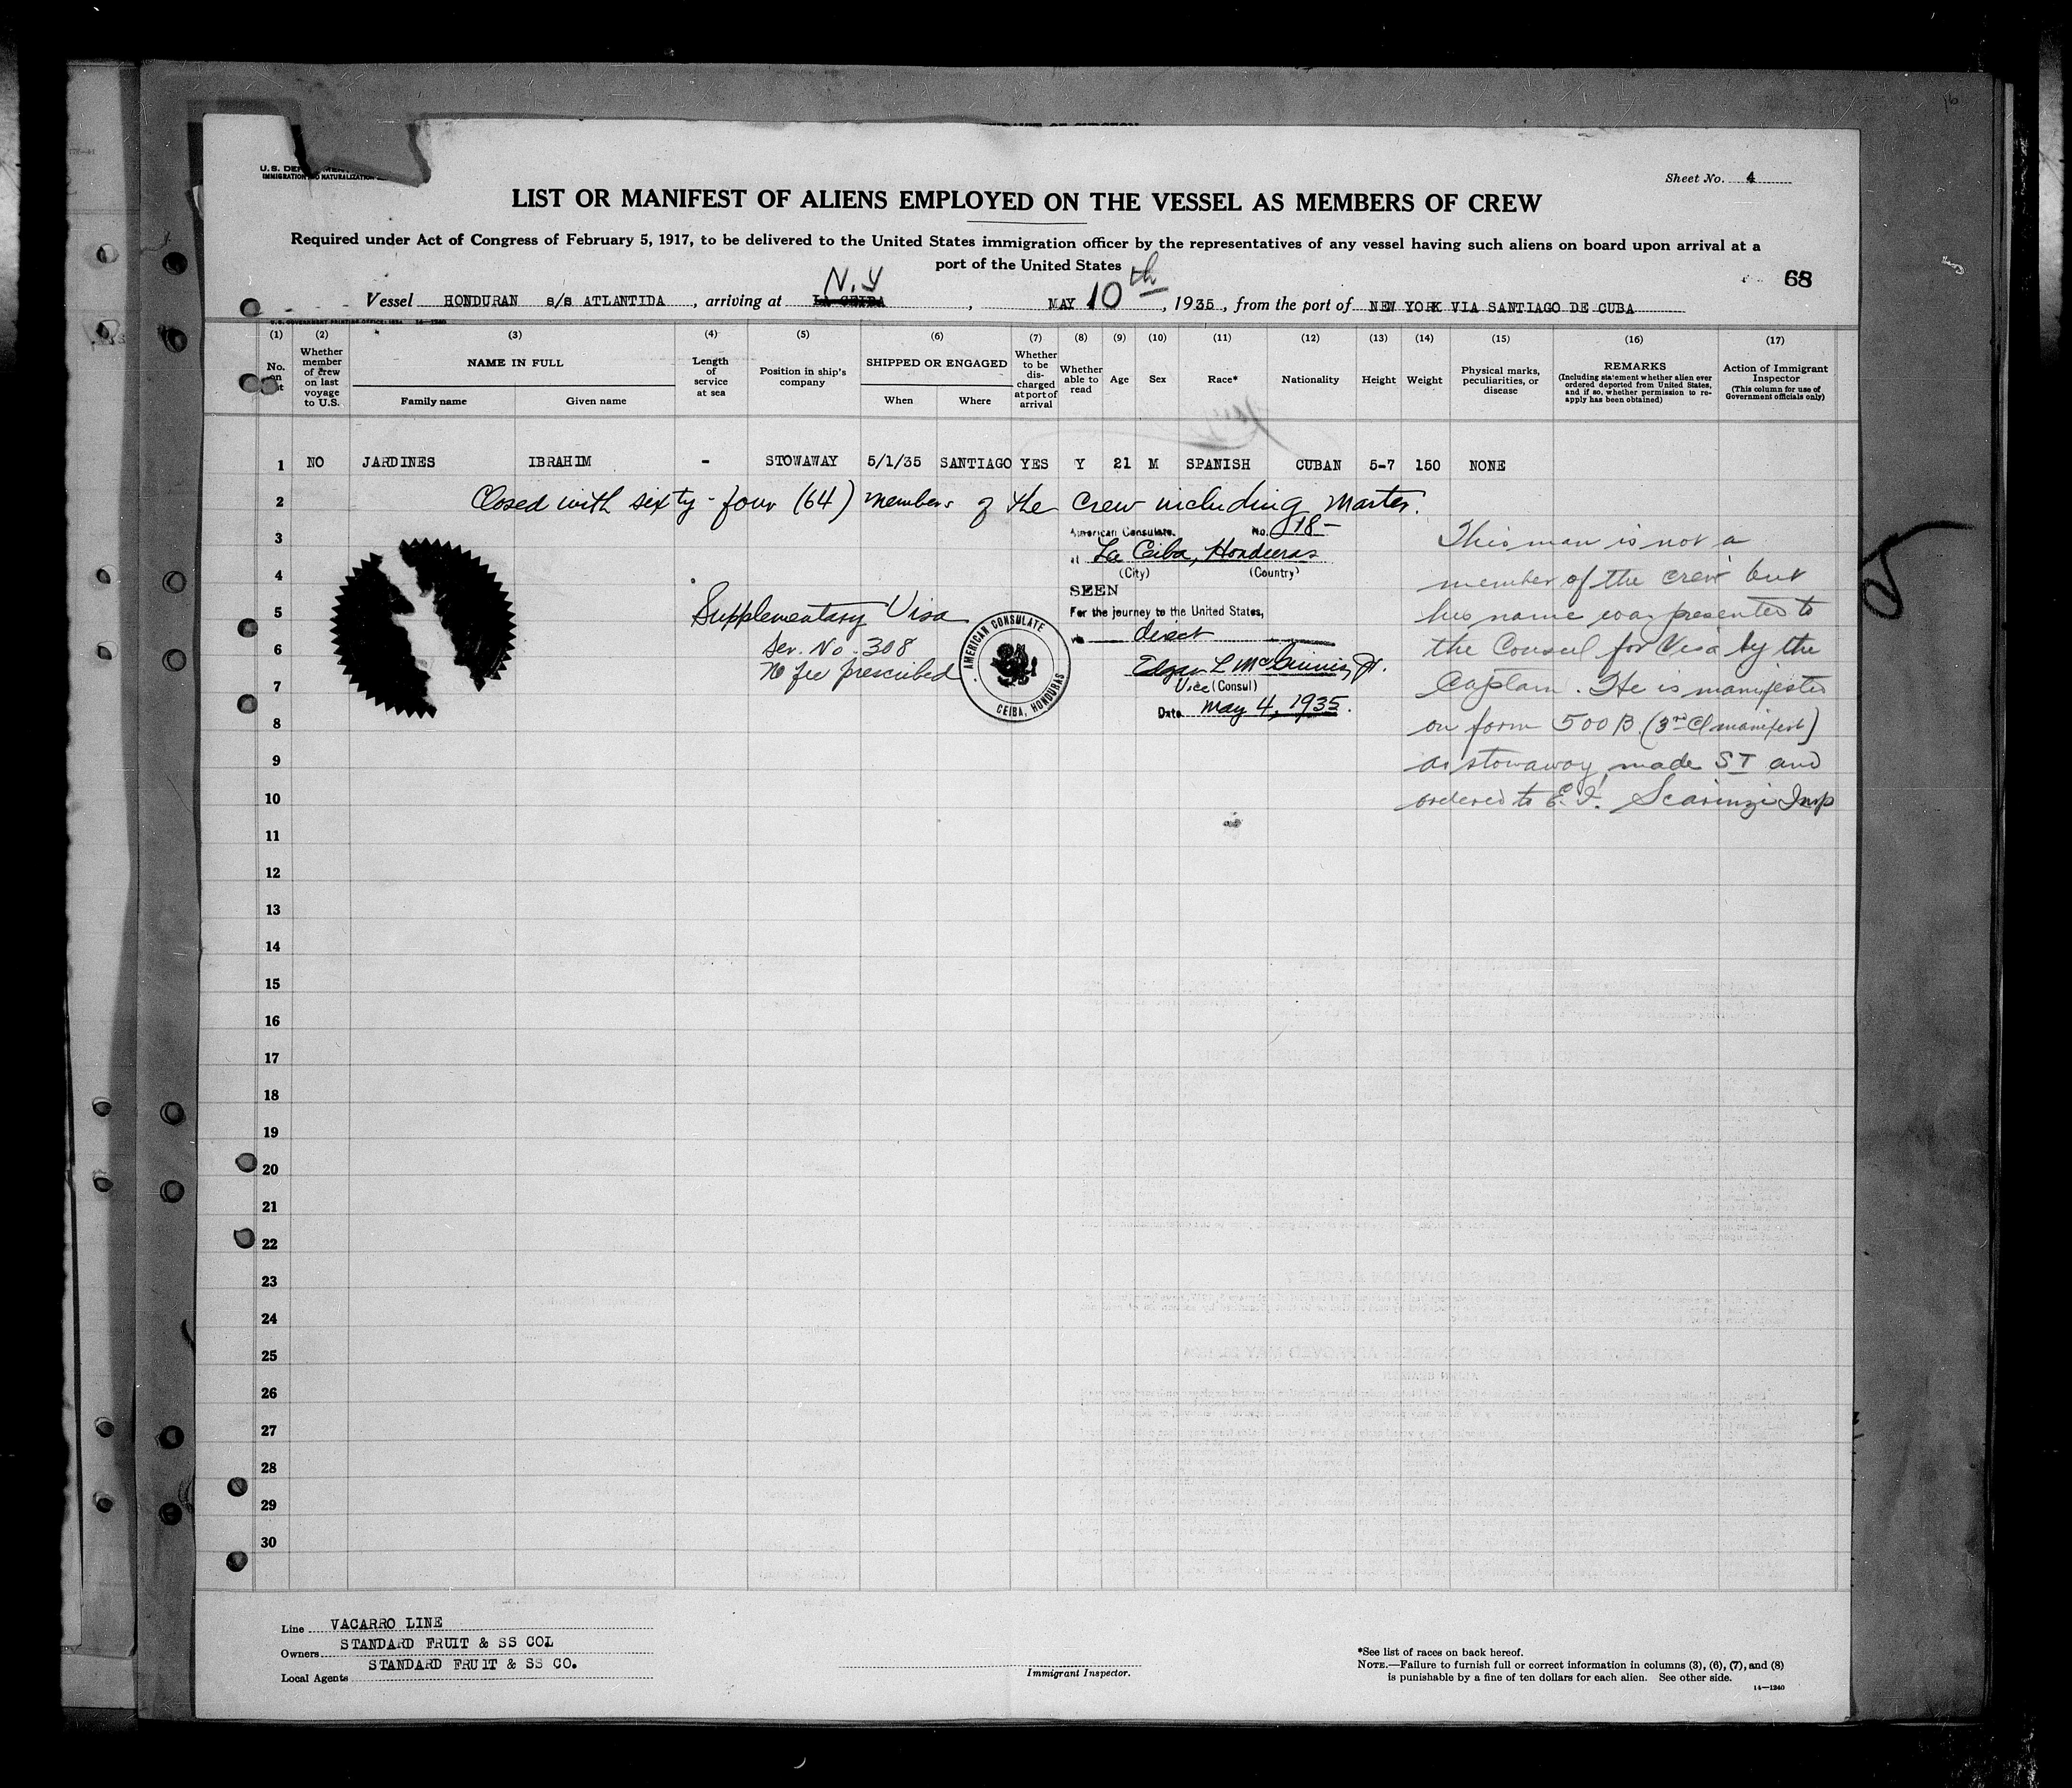 U.S. DE
IMMIGRATION AND NATURALIZATION
Sheet No. 4
LIST OR MANIFEST OF ALIENS EMPLOYED ON THE VESSEL AS MEMBERS OF CREW
Required under Act of Congress of February 5, 1917, to be delivered to the United States immigration officer by the representatives of any vessel having such aliens on board upon arrival at a
port of the United States
68
N.Y
Vessel HONDURAN s/s ATLANTIDA, arriving at LA CEIBA, MAY 10th, 1935, from the port of NEW YORK VIA SANTIAGO DE CUBA
(1) (2) (3) (4) (5) (6) (7) (8) (9) (10) (11) (12) (13) (14) (15) (16) (17)
No. on
Whether member of crew on last voyage to U.S.
NAME IN FULL
Family name Given name
Length of service at sea
Position in ship's company
SHIPPED OR ENGAGED
When Where
Whether to be dis-charged at port of arrival
Whether able to read
Age
Sex
Race*
Nationality
Height
Weight
Physical marks, peculiarities, or disease
REMARKS
(Including statement whether alien ever ordered deported from United States, and if so, whether permission to re-apply has been obtained)
Action of Immigrant Inspector
(This column for use of Government officials only)
1 NO JARDINES IBRAHIM - STOWAWAY 5/1/35 SANTIAGO YES Y 21 M SPANISH CUBAN 5-7 150 NONE
2 Closed with sixty-four (64) members of the crew including Master.
3
4
5
6
7
8
9
10
11
12
13
14
15
16
17
18
19
20
21
22
23
24
25
26
27
28
29
30
American Consulate. No. 18-
at La Ceiba, Honduras
(City) (Country)
SEEN
For the journey to the United States,
via direct
Edgar L McGinnis, Jr.
Vice (Consul)
Date May 4, 1935.
Supplementary Visa
Ser. No. 308
No fee prescribed
AMERICAN CONSULATE
CEIBA, HONDURAS
This man is not a
member of the crew but
his name was presented to
the Consul for Visa by the
Captain. He is manifested
on form 500 B. (3rd Cl manifest)
as stowaway, made SI and
ordered to E.I. Scarinzi Insp
Line VACARRO LINE
Owners STANDARD FRUIT & SS COL
Local Agents STANDARD FRUIT & SS CO.
Immigrant Inspector.
*See list of races on back hereof.
NOTE.—Failure to furnish full or correct information in columns (3), (6), (7), and (8)
is punishable by a fine of ten dollars for each alien. See other side.
14—1240